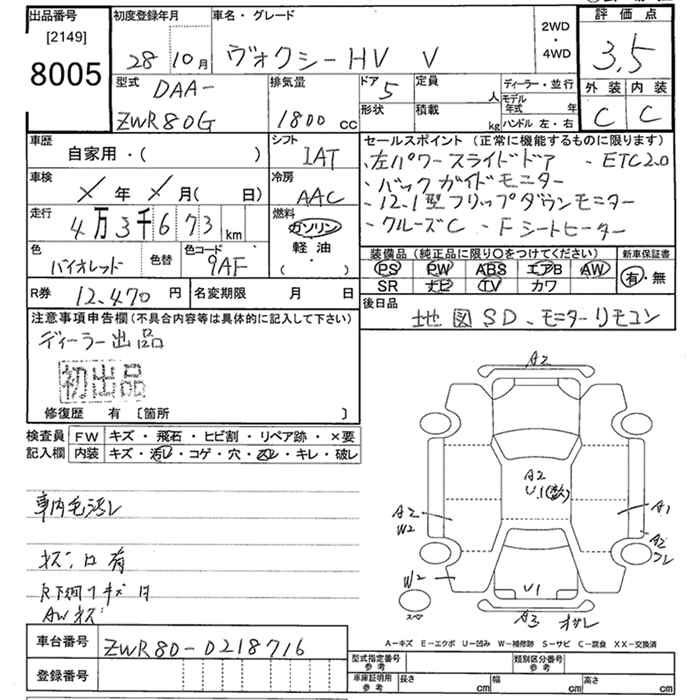 出品番号
[2149]
8005
初度登録年月
28年10月
車名・グレード
ヴォクシーHV V
2WD
・
4WD
評価点
3.5
外装 内装
C C
型式
DAA-
ZWR80G
排気量
1800 cc
ドア 5
定員
人
形状
積載
kg
ディーラー・並行
モデル年式 年
ハンドル 左・右
車歴
自家用・( )
シフト
IAT
車検
× 年 × 月( 日)
冷房
AAC
走行
4万3千673 km
燃料
ガソリン
軽油
・
( )
色
バイオレット
色替
色コード
9AF
R券 12,470 円
名変期限 月 日
セールスポイント (正常に機能するものに限ります)
・左パワースライドドア ・ETC2.0
・バックガイドモニター
・12.1型フリップダウンモニター
・クルーズC ・Fシートヒーター
装備品 (純正品に限り○をつけてください)
PS PW ABS エアB AW
SR ナビ TV カワ
新車保証書
有・無
後日品
地図SD、モニターリモコン
注意事項申告欄 (不具合内容等は具体的に記入して下さい)
ディーラー出品
初出品
修復歴 有 [箇所 ]
検査員記入欄
FW キズ・飛石・ヒビ割・リペア跡・×要
内装 キズ・汚レ・コゲ・穴・スレ・キレ・破レ
車内毛汚レ
キズ 有
AWキズ
車台番号 ZWR80-0218716
登録番号
A2
A2
U1
A2
W2
A1
A2
W2
U1
A3
スペア
A-キズ E-エクボ U-凹み W-補修跡 S-サビ C-腐食 XX-交換済
型式指定番号
参考
類別区分番号
参考
車庫証明用
参考
長さ cm 幅 cm 高さ cm